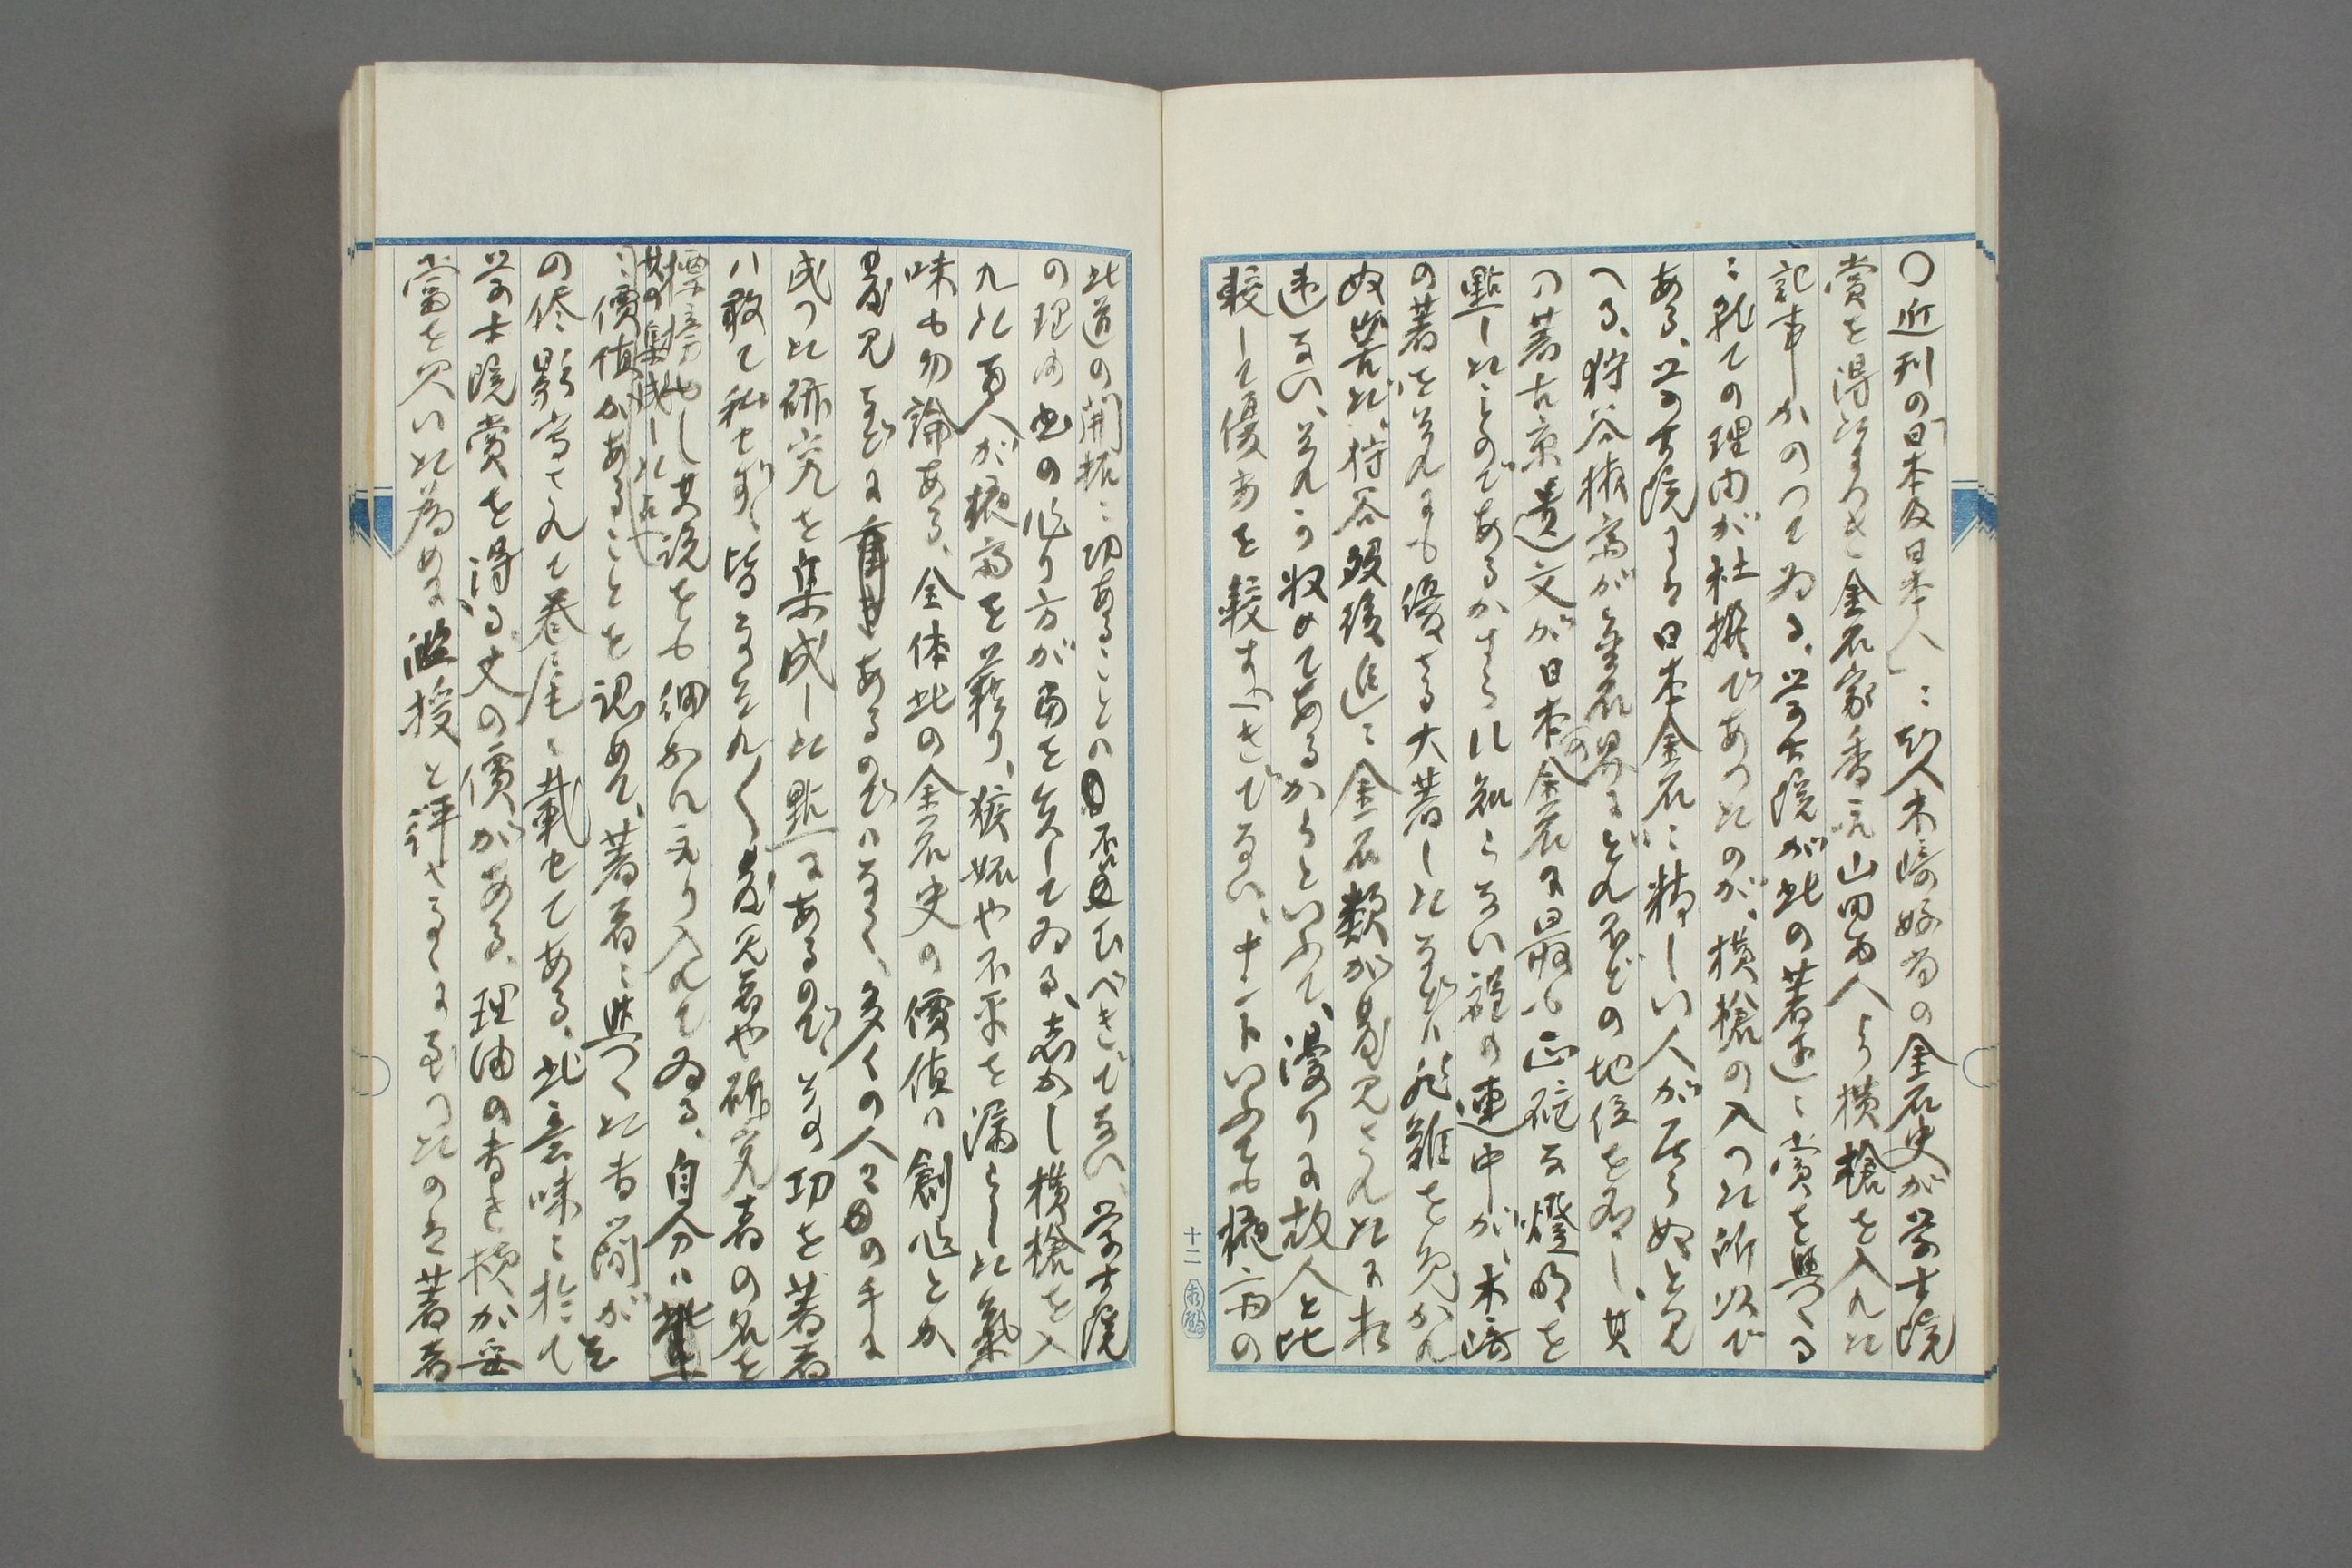 〇近刊の「日本及日本人」ニ故人木崎好尚の金石史が学士院
賞を得たるつき金石家香亭山田両人より横槍を入れた
記事がのつてゐる、学士院が此の著述ニ賞を與へる
ニ就ての理由が杜撰であつたのが、横槍の入つた所以で
ある、学士院には日本金石ニ精しい人が居らぬと見
へる、狩谷棭斎が金石界のまどれ不どの地位を有し、其
の著古京遺文が日本金石の最も正確な燈明を
點したものであるかすら凡知らない程の連中が、木崎
の著をそれよりも優さる大著したなぞハ非難を免かれ
ぬ筈だ、狩谷歿後追ニ金石類が発見されたに相
違ない、それら収めてあるからといふて、漫りに故人と比
較して優劣を較すべきでない、ナントいふても棭斎の
此道の開拓ニ功あることの否むべきでない、学士院
の理由書の作り方が当を失してゐる、志かし横槍を入
れた両人が棭斎を藉り、猜妬や不平を漏らした氣
味も勿論ある、全体此の金石史の價値ハ創作とか
発見とかにあるのでハなく、多くの人々の手に
成つた研究を集成した點にあるので、その功を著者
ハ敢て私せず、皆なそれ〱発見者や研究者の名を
標榜し其説をも細かに取り入れてゐる、自分ハ
其の集成した点
ニ價値があることを認めて、著者ニ與へた書簡が其
の侭影写されて巻尾ニ載せてある、此意味ニ於て
学士院賞を得る丈の價がある、理由の書き様が妥
當を欠いた為めに濫授と評せらるゝに至つたのは著者
十二